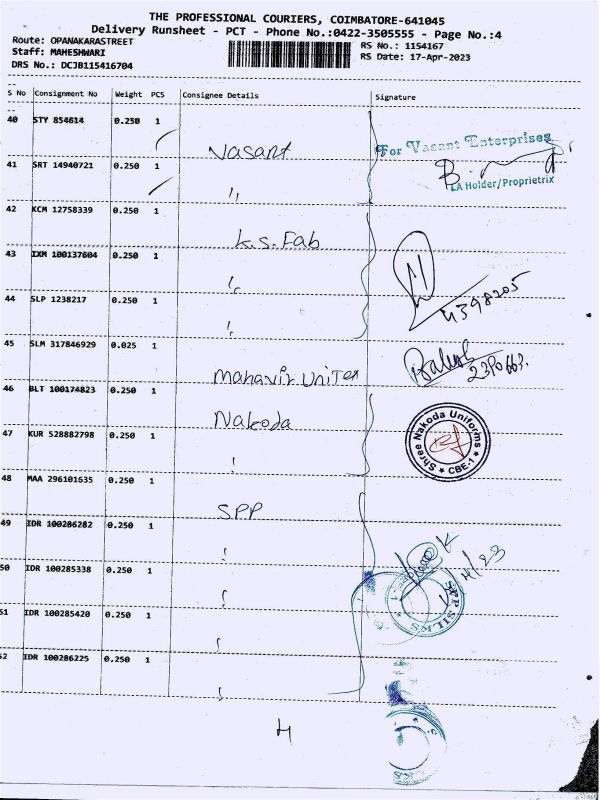 THE PROFESSIONAL COURIERS, COIMBATORE-641045
Delivery Runsheet - PCT - Phone No.:0422-3505555 - Page No.:4
Route: OPANAKARASTREET
Staff: MAHESHWARI
DRS No.: DCJB115416704
RS No.: 1154167
RS Date: 17-Apr-2023
S No Consignment No Weight PCS Consignee Details Signature
40 STY 854614 0.250 1
Vasant
For Vasant Enterprises
LA Holder/Proprietrix
41 SRT 14940721 0.250 1
"
42 KCM 12758339 0.250 1
K.S. Fab
43 IXM 100137604 0.250 1
44 SLP 1238217 0.250 1
45 SLM 317846929 0.025 1
Mahavir Uniter
2390663.
46 BLT 100174823 0.250 1
Nakoda
Shree Nakoda Uniforms
CBE-1
47 KUR 528882798 0.250 1
48 MAA 296101635 0.250 1
SPP
49 IDR 100286282 0.250 1
50 IDR 100285338 0.250 1
SPP SILKS
51 IDR 100285420 0.250 1
52 IDR 100286225 0.250 1
4